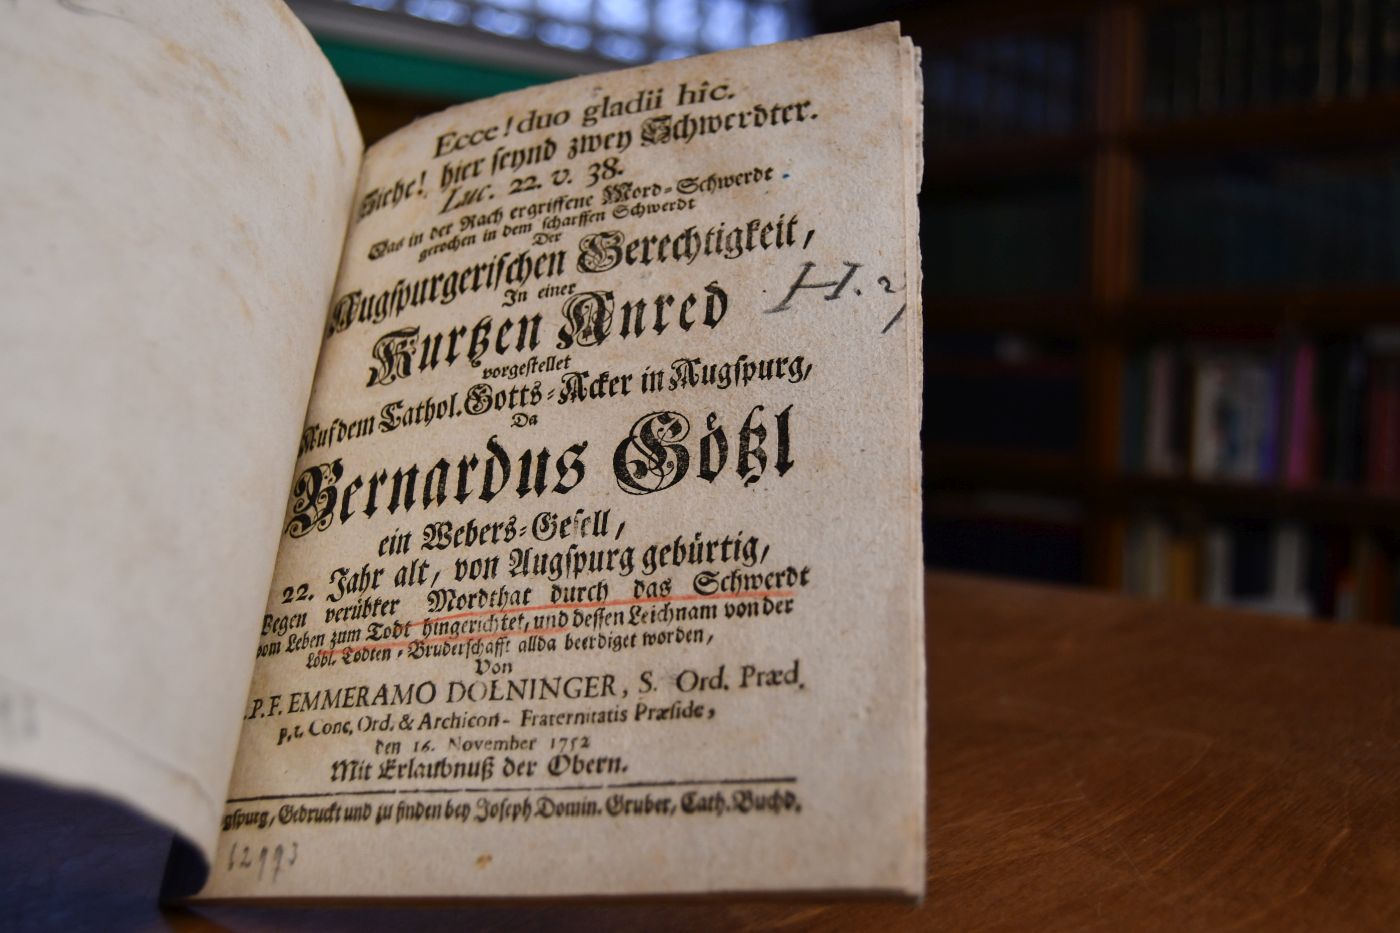 Ecce! duo gladii hîc.
Siehe! hier seynd zwey Schwerdter.
Luc. 22. v. 38.
Das in der Rach ergriffene Mord-Schwerdt
gerochen in dem scharffen Schwerdt
Der
Augspurgerischen Gerechtigkeit,
In einer
Kurtzen Anred
H. 2,
vorgestellet
Auf dem Cathol. Gotts-Acker in Augspurg,
Da
Bernardus Götzl
ein Webers-Gesell,
22. Jahr alt, von Augspurg gebürtig,
Wegen verübter Mordthat durch das Schwerdt
vom Leben zum Todt hingerichtet, und dessen Leichnam von der
Löbl. Todten-Bruderschafft allda beerdiget worden,
Von
P. F. EMMERAMO DOLNINGER, S. Ord. Præd.
p. t. Conc. Ord. & Archicon-Fraternitatis Præside,
den 16. November 1752
Mit Erlaubnuß der Obern.
Augspurg, Gedruckt und zu finden bey Joseph Domin. Gruber, Cath. Buchd.